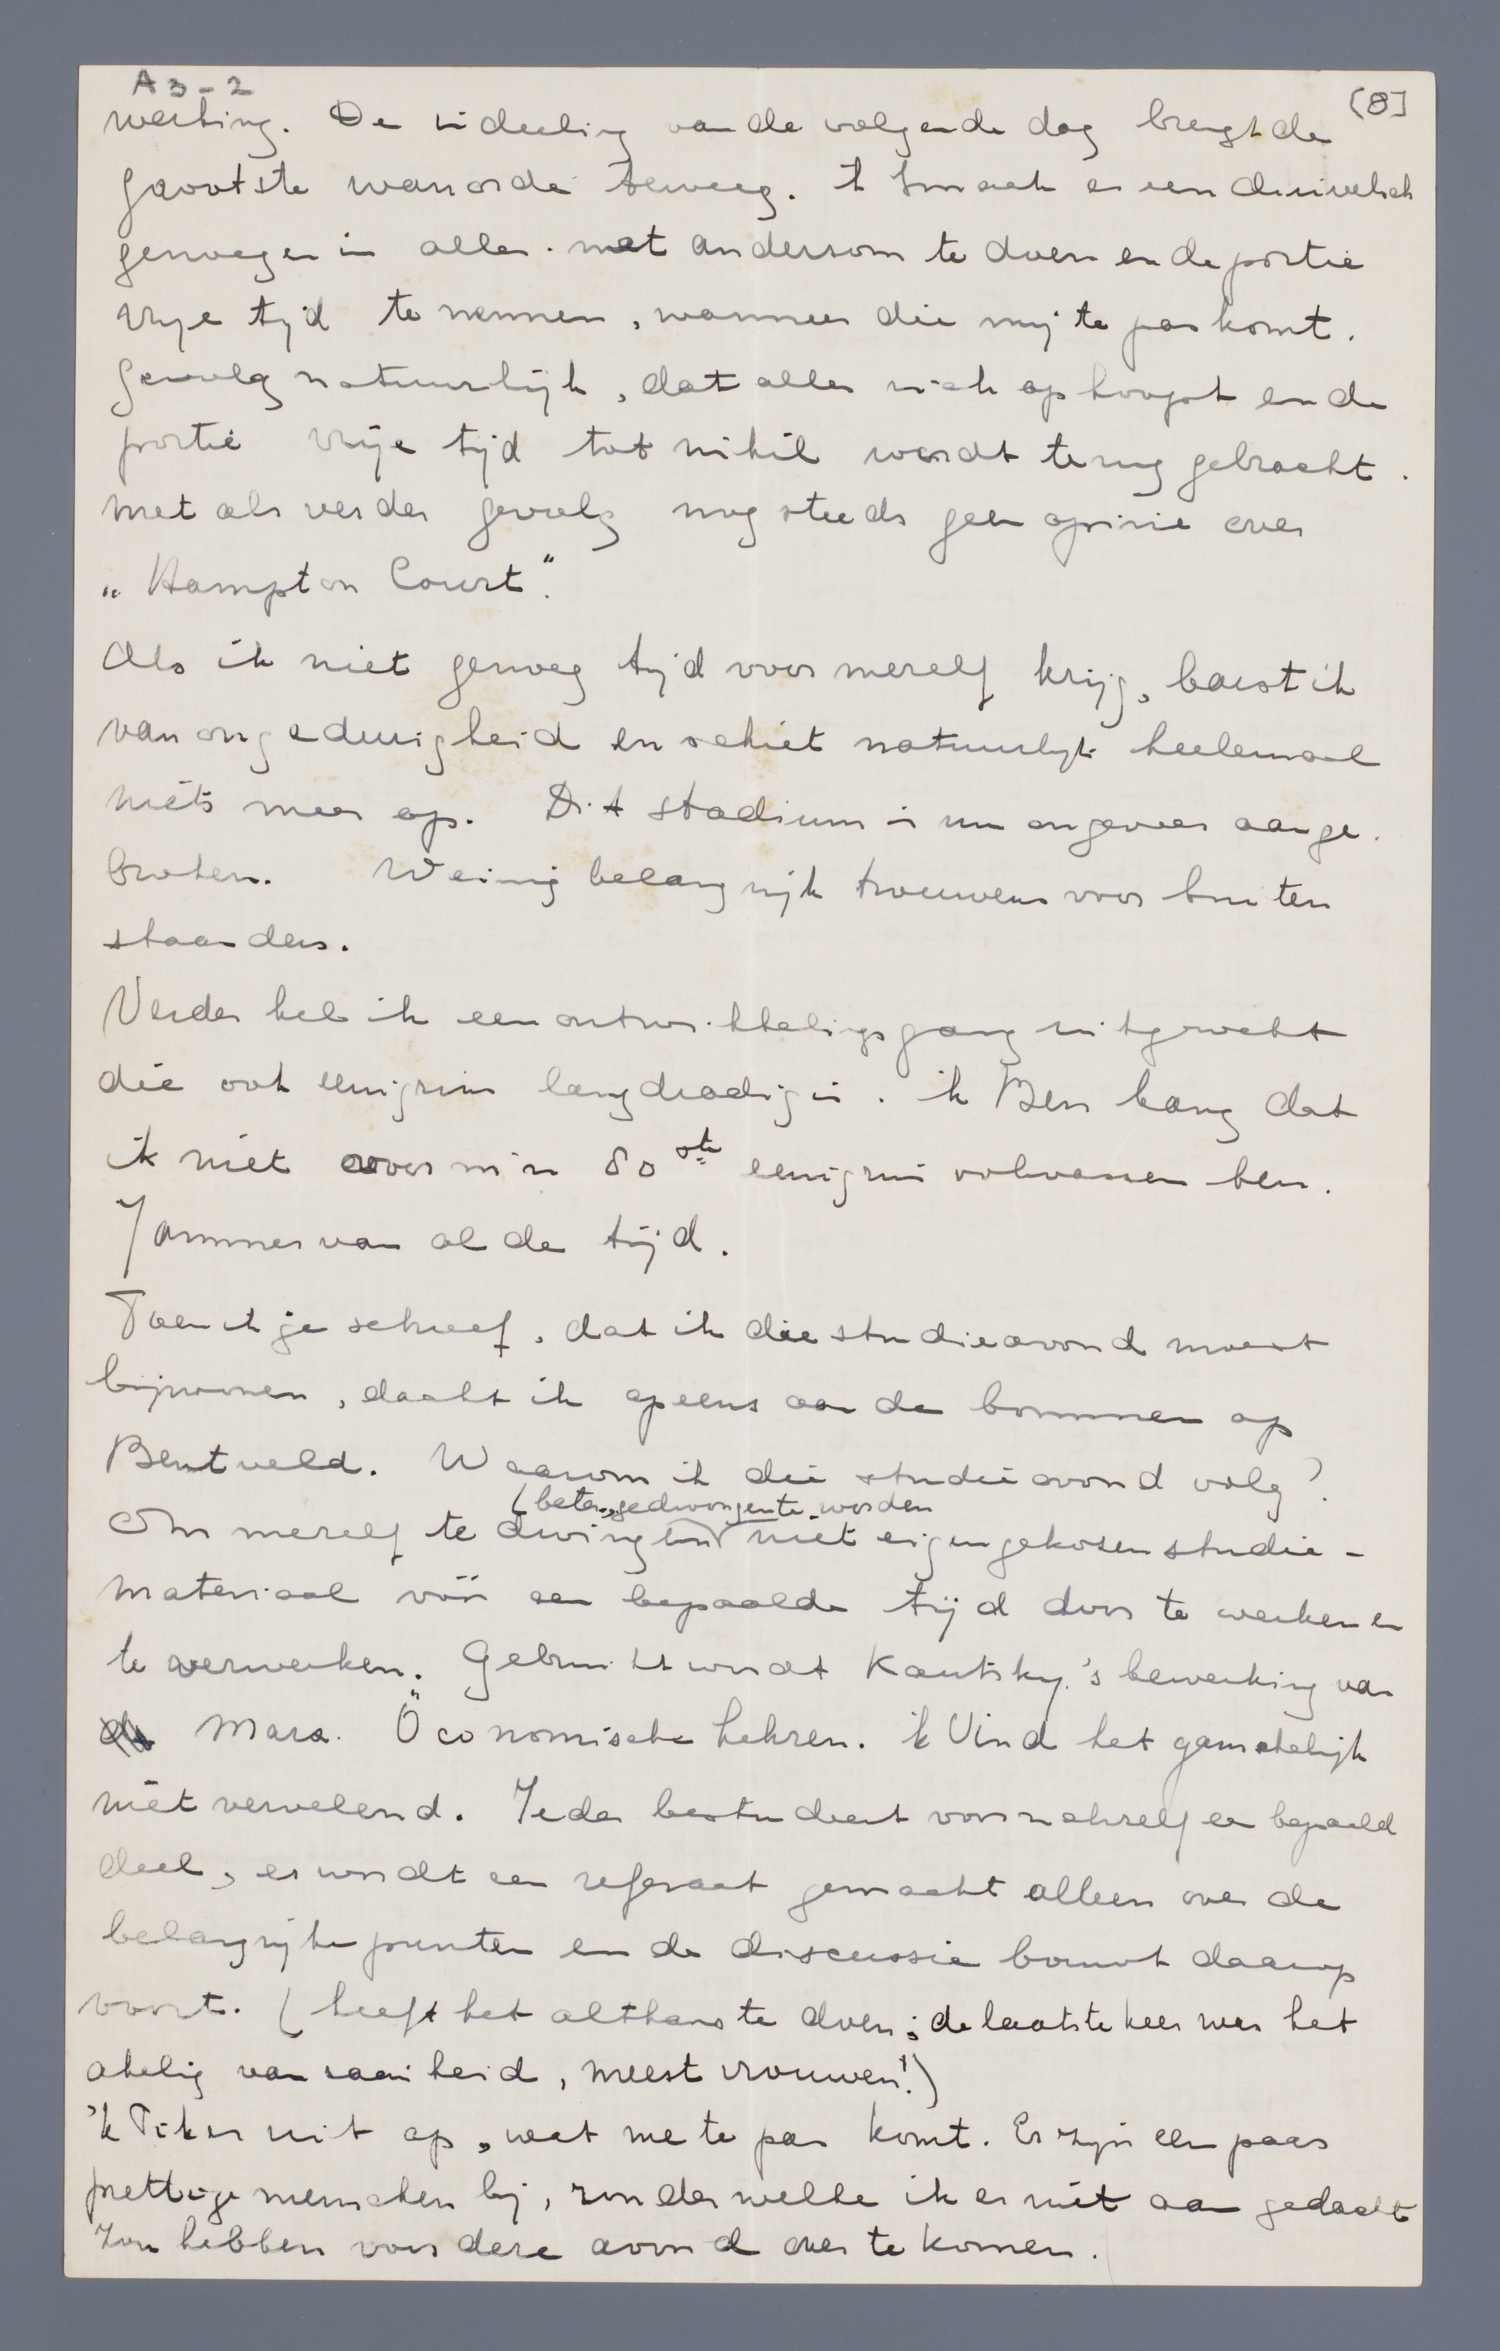 A3-2
(8]
werking. De indeeling van de volgende dag brengt de
grootste wanorde teweeg. 'k Smaak er een duivelsch
genoegen in alles met andersom te doen en de portie
vrije tijd te nemen, wanneer die mij te pas komt.
Gevolg natuurlijk, dat alles zich ophoopt en de
portie vrije tijd tot nihil wordt terug gebracht.
met als verder gevolg nog steeds geen opinie over
„Hampton Court".
Als ik niet genoeg tijd voor mezelf krijg, barst ik
van ongedurigheid en schiet natuurlijk heelemaal
niets meer op. Dit stadium is nu ongeveer aange-
broken. Weinig belangrijk trouwens voor buiten
staanders.
Verder heb ik een ontwikkelingsgang uitgezocht
die ook eenigzins langdradig is. ik Ben bang dat
ik niet voor m'n 80ste eenigzins volwassen ben.
Jammer van al de tijd.
Toen ik je schreef, dat ik die studieavond moest
bijwonen, dacht ik opeens aan de bommen op
Bentveld. Waarom ik die studieavond volg?
(beter „gedwongen te worden
Om mezelf te dwingen niet eigengekozen studie-
materiaal vóór een bepaalde tijd door te werken en
te verwerken. Gebruikt wordt Kautsky's bewerking van
Marx. Öconomische Lehren. ik Vind het gemakelijk
niet vervelend. Ieder bestudeert voor zichzelf een bepaald
deel, er wordt een referaat gemaakt alleen over de
belangrijke punten en de discussie bouwt daarop
voort. (heeft het althans te doen; de laatste keer was het
akelig van saaiheid, meest vrouwen!)
'k Pik er uit op, wat me te pas komt. Er zijn een paar
prettige menschen bij, zonder welke ik er niet aan gedacht
zou hebben voor deze avond over te komen.